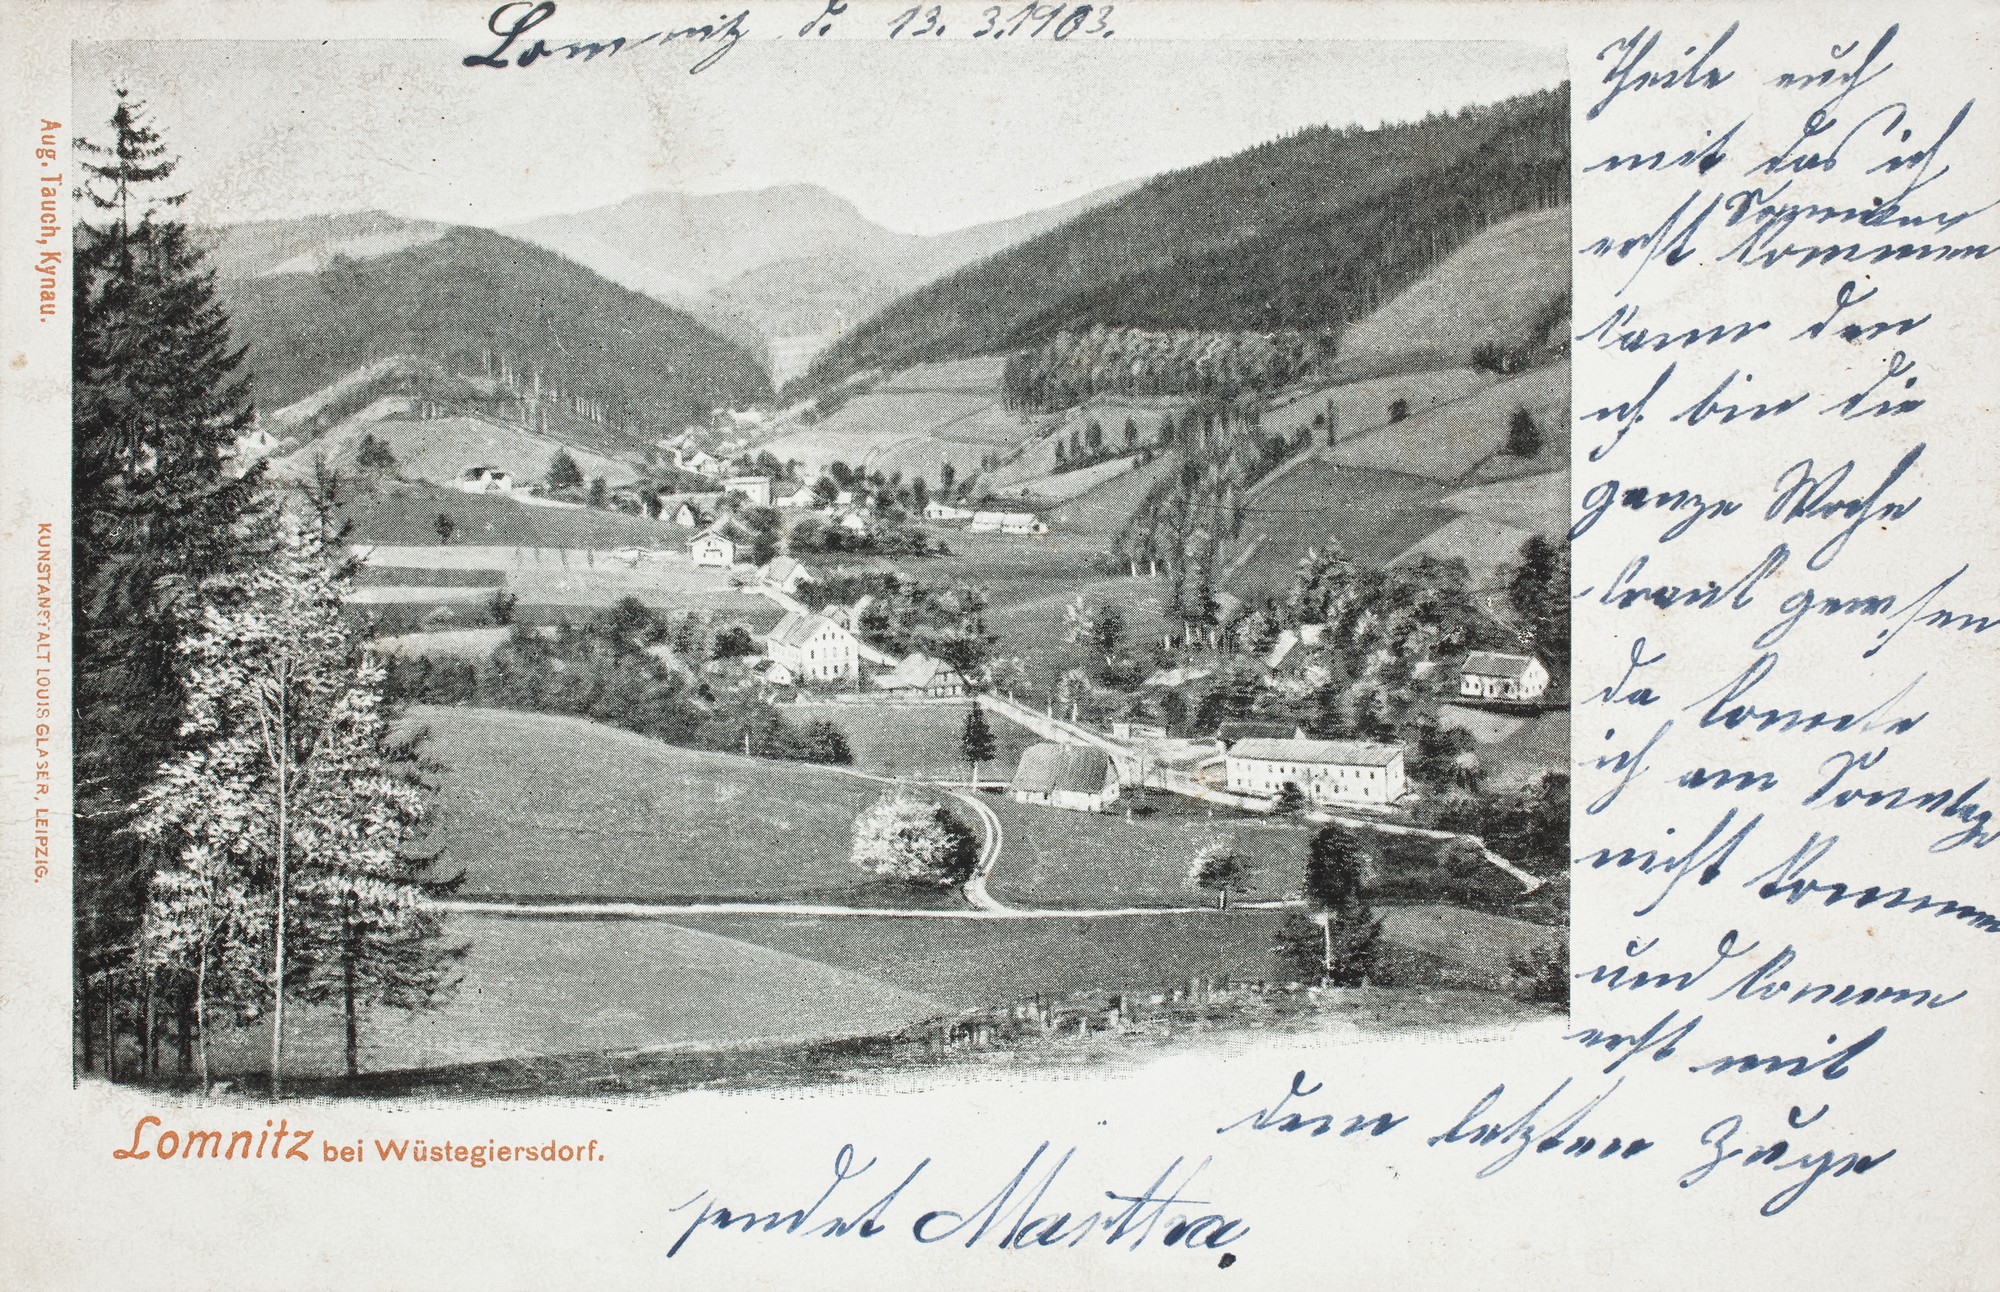 Lomnitz d. 13. 3. 1903.
Theile euch
mit das ich
erst Sonnabend kommen
kann den
ich bin die
ganze Woche
krank gewesen
da konnte
ich am Sonntage
nicht kommen
und komme
erst mit
dem letzten Zuge
sendet Martha.
Aug. Tauch, Kynau.
KUNSTANSTALT LOUIS GLASER, LEIPZIG.
Lomnitz bei Wüstegiersdorf.